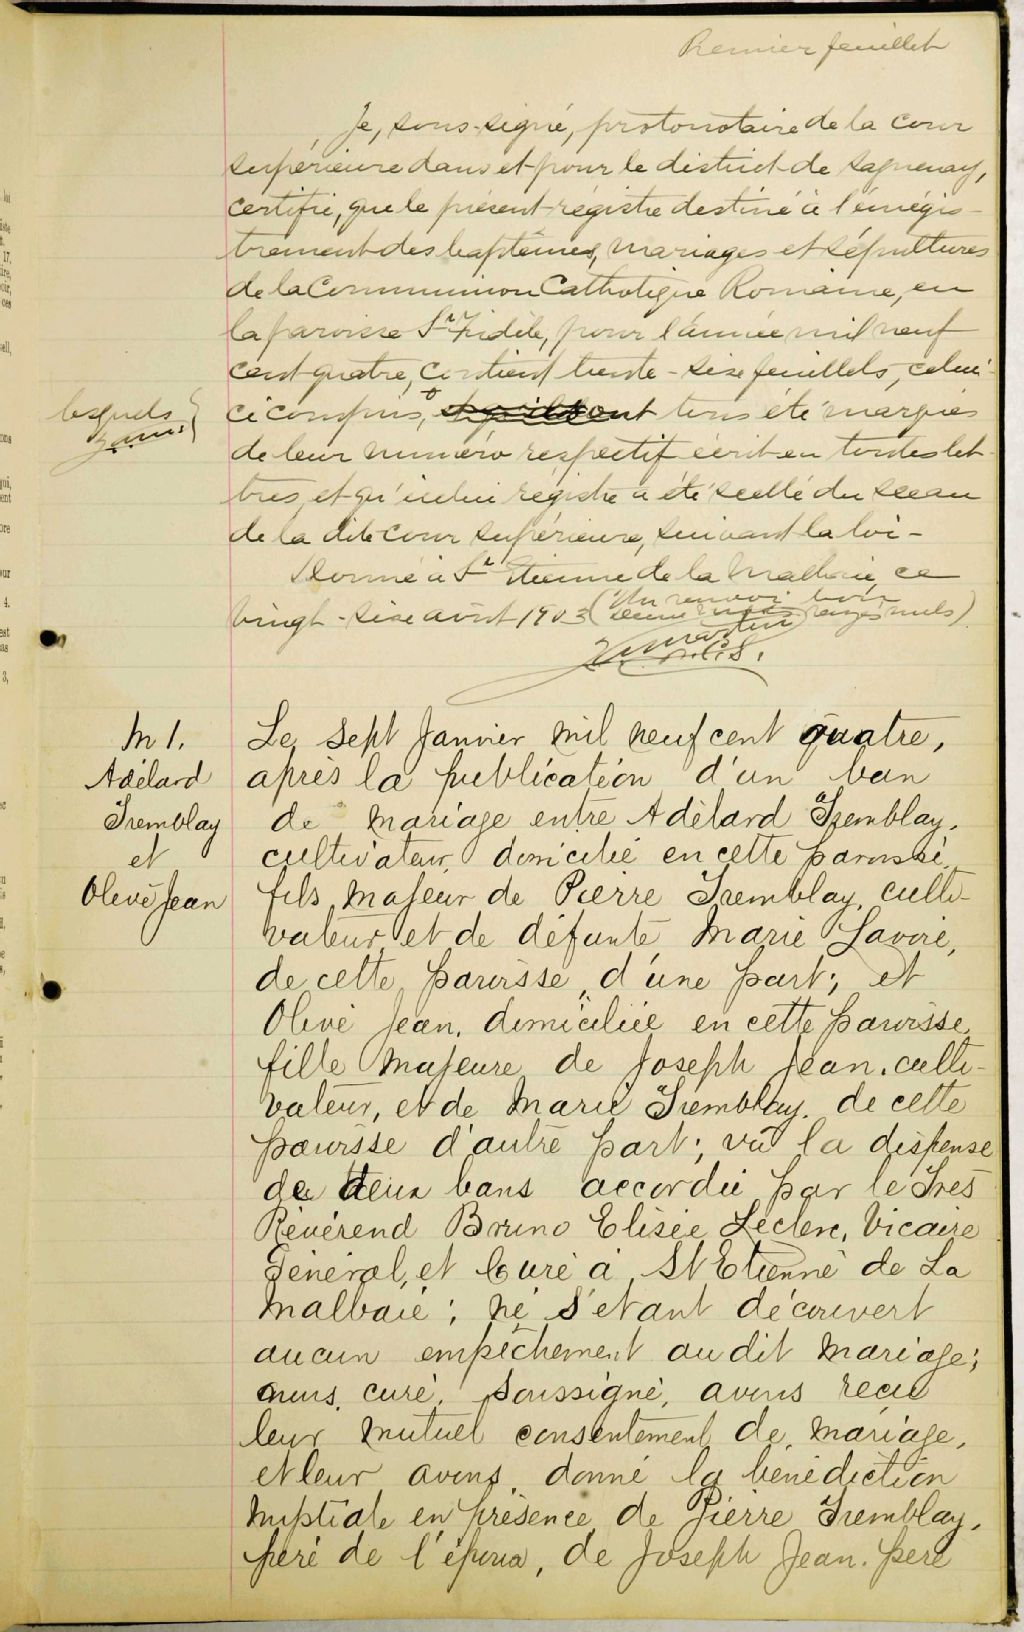 Premier feuillet
Je, sous-signé, protonotaire de la cour
supérieure dans et pour le district de Saguenay,
certifie, que le présent régistre destiné à l'énrégis-
trement des baptêmes, mariages et sépultures
de la Communion Catholique Romaine, en
la paroisse St Fidèle, pour l'année mil neuf
cent quatre, contient trente-six feuillets, celui-
lesquels
ci compris, ont tous été marqués
de leur numéro respectif écrit en toutes let-
tres, et qu'icelui régistre a été scellé du sceau
de la dite cour supérieure, suivant la loi -
Donné à St Etienne de la Malbaie, ce
vingt-six août 1903 (Un renvoi bon
rayés nuls)
P.C.S.
M 1.
Adélard
Tremblay
et
Olevé Jean
Le sept Janvier mil neuf cent quatre,
après la publication d'un ban
de mariage entre Adélard Tremblay,
cultivateur, domicilié en cette paroisse,
fils majeur de Pierre Tremblay, culti-
vateur, et de défunte Marie Lavoie,
de cette paroisse, d'une part; et
Olevé Jean, domiciliée en cette paroisse,
fille majeure de Joseph Jean, culti-
vateur, et de Marie Tremblay, de cette
paroisse d'autre part; vû la dispense
de deux bans accordée par le Très
Révérend Bruno Elisée Leclerc, Vicaire
Général, et Curé à St Etienne de La
Malbaie; ne s'etant découvert
aucun empêchement au dit mariage;
nous, curé, soussigné, avons reçu
leur mutuel consentement de mariage,
et leur avons donné la bénédiction
nuptiale en présence de Pierre Tremblay,
père de l'époux, de Joseph Jean, père